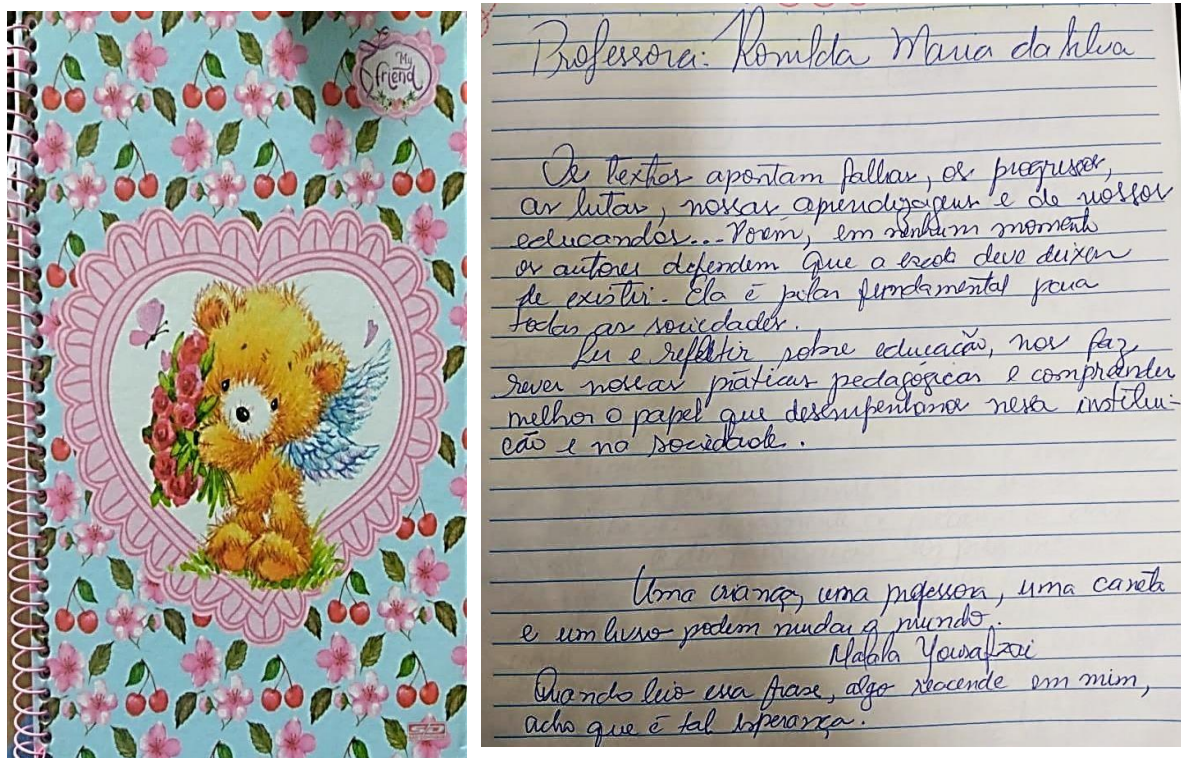 My
friend
Professora: Romilda Maria da Silva
Os textos apontam falhas, os progressos,
as lutas, nossas aprendizagens e de nossos
educandos... Porém, em nenhum momento
os autores defendem que a escola deve deixar
de existir. Ela é pilar fundamental para
todas as sociedades.
Ler e refletir sobre educação, nos faz
rever nossas práticas pedagógicas e compreender
melhor o papel que desempenhamos nessa institui-
ção e na sociedade.
Uma criança, uma professora, uma caneta
e um livro podem mudar o mundo.
Malala Yousafzai
Quando leio essa frase, algo reacende em mim,
acho que é tal esperança.